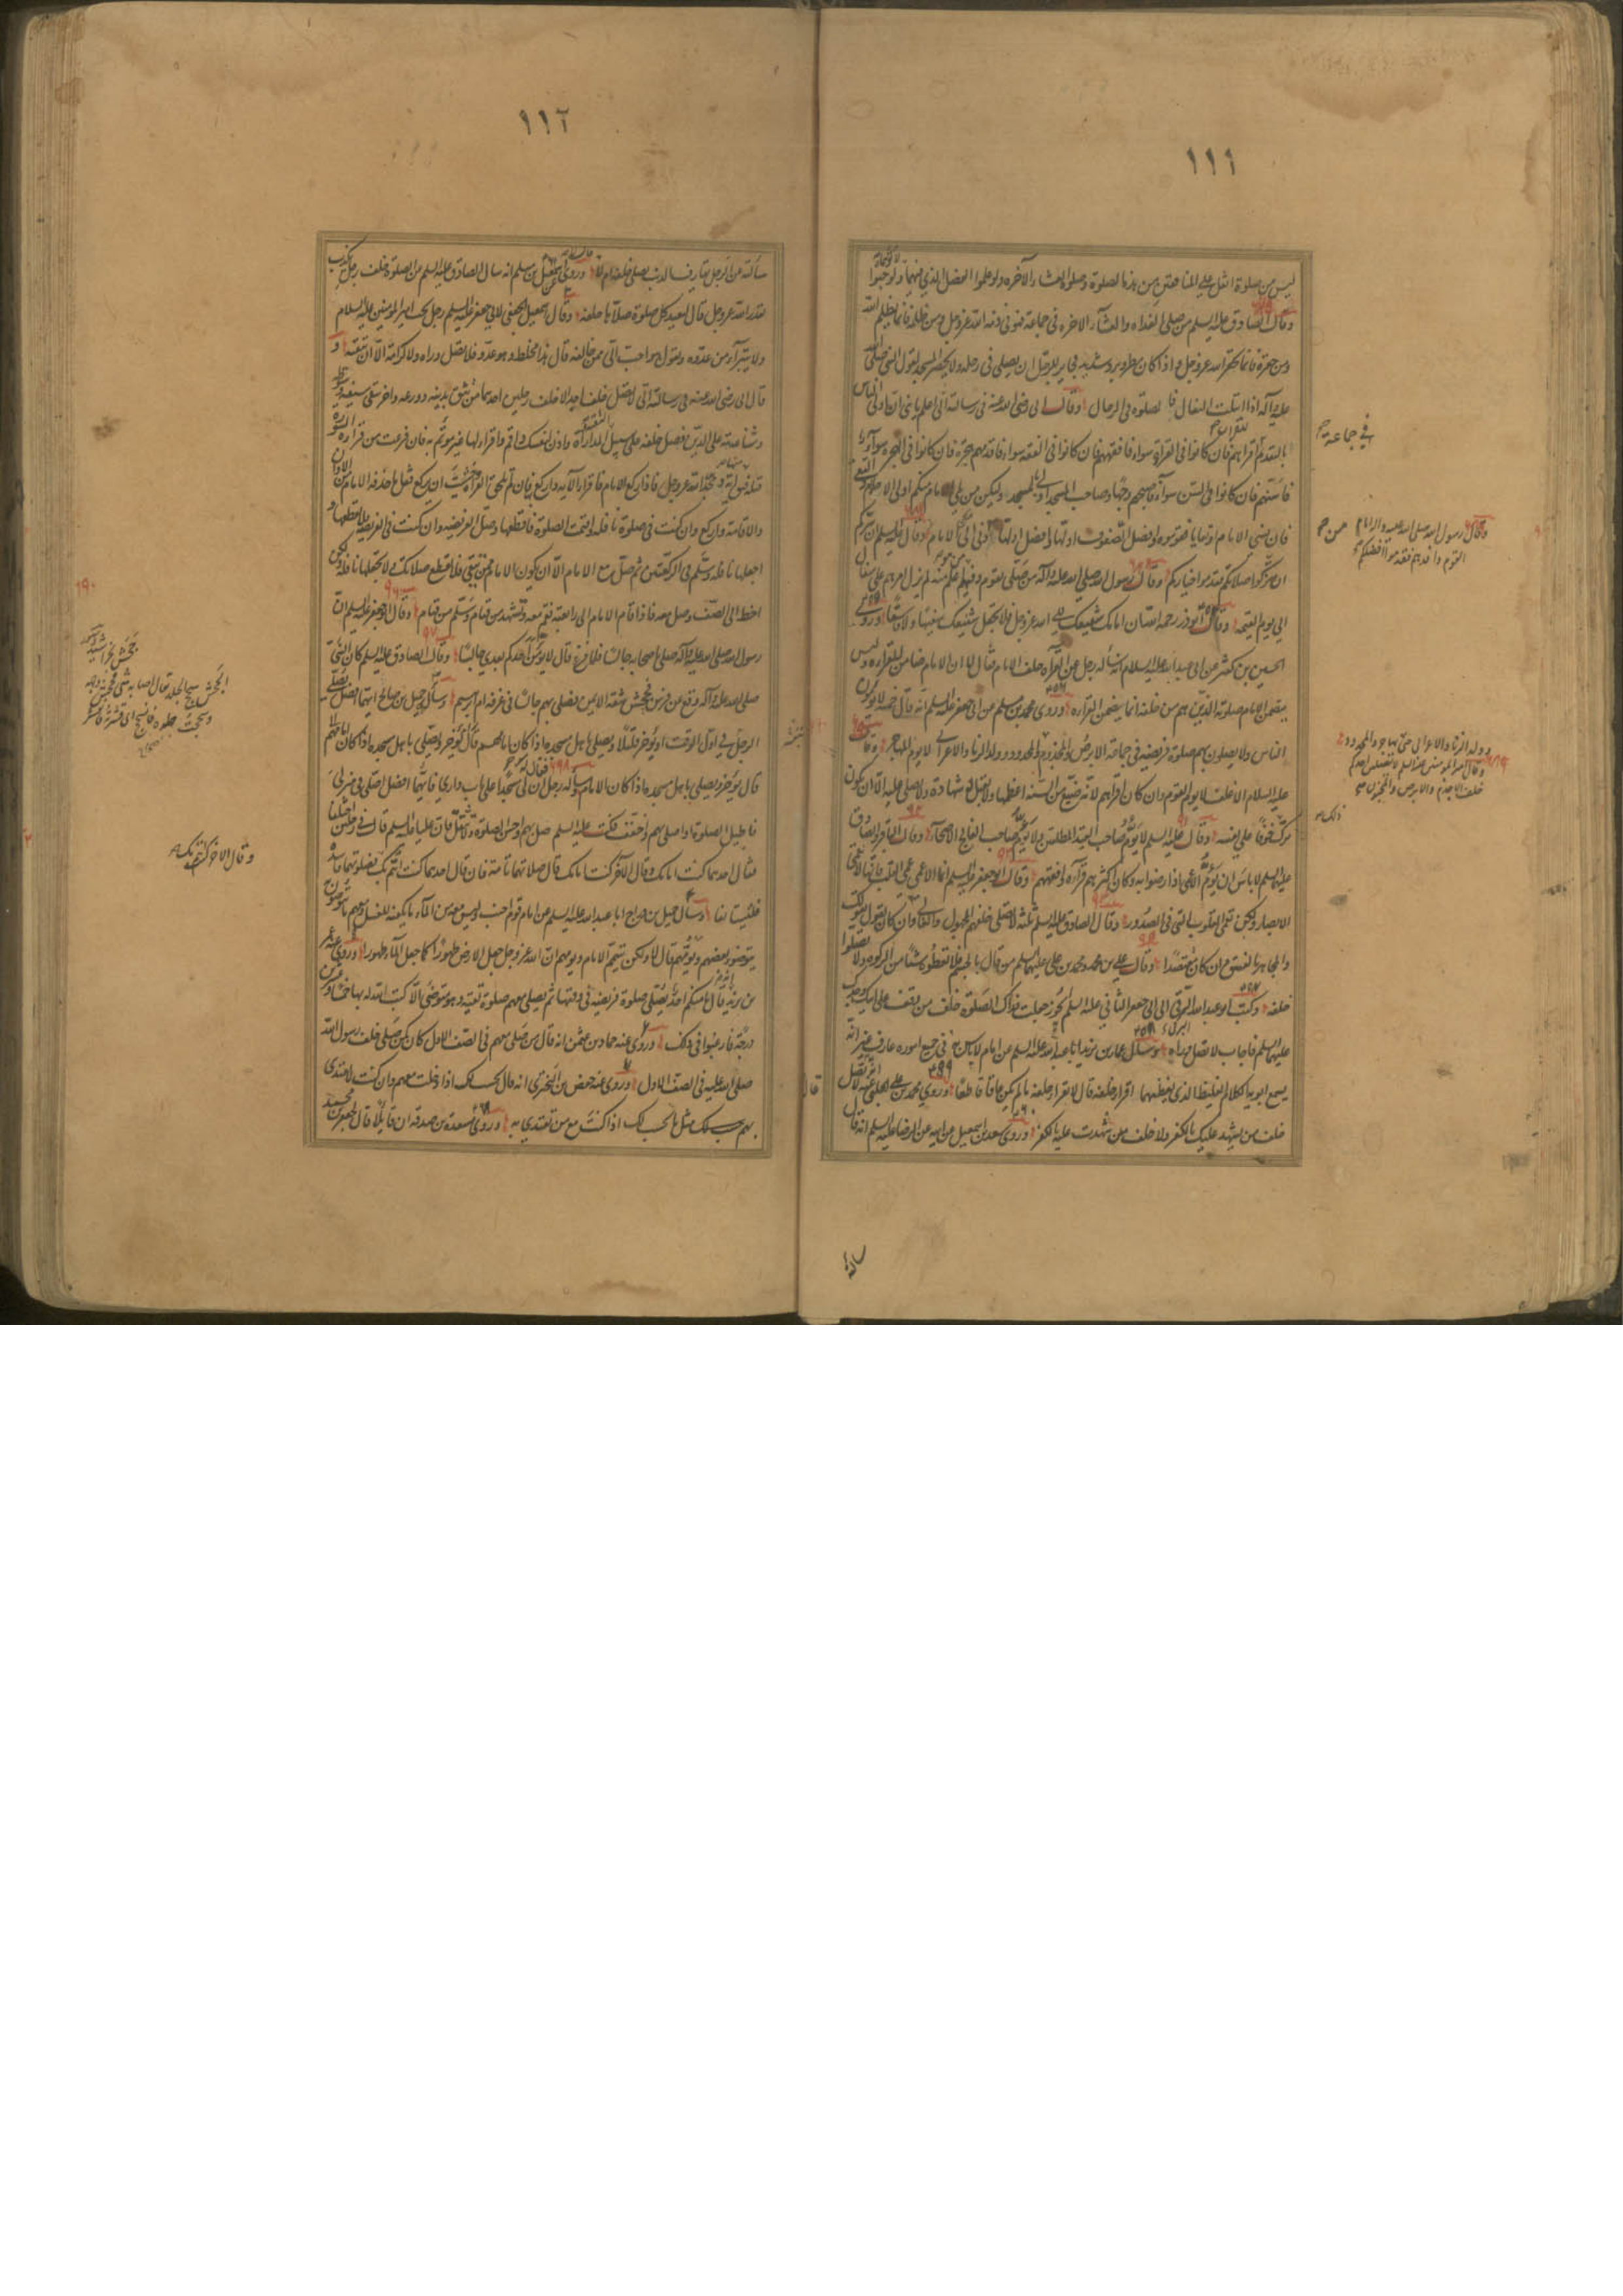 ١١١
ليس من صلوة اثقل على المنافقين من هذه الصلوة وصلوة العشاء الآخرة ولو علموا الفضل الذي فيهما لأتوهما ولو حبوا
وقال الصادق عليه السلم من صلى الغداة والعشاء الآخرة في جماعة فهو في ذمة الله عز وجل ومن ظلمه فانما يظلم الله
ومن حقره فانما يحقر الله عز وجل واذا كان مطر وبرد شديد فجايز للرجل ان يصلى في رحله ولا يحضر المسجد لقول النبي صلى الله
عليه وآله اذا ابتلت النعال فا لصلوة في الرحال وقال ابي رضي الله عنه في رسالته الي اعلم يا بني ان اولى الناس
بالتقدم اقراهم للقرآن فان كانوا في القراءة سواء فافقههم فان كانوا في الفقه سواء فاقدمهم هجرة فان كانوا في الهجرة سواء
فاسنهم فان كانوا في السن سواء فاصبحهم وجها وصاحب المسجد اولى بمسجده وليكن من يلى الامام منكم اولى الاحلام والتقى
فان نسي الامام او تعايا فقوموه وافضل الصفوف اولها وافضل اولها ما دنى الى الامام وقال عليه السلم ان سركم
ان تزكوا صلاتكم فقدموا خياركم وقال رسول الله صلى الله عليه وآله من صلى بقوم وفيهم من هو اعلم منه لم يزل امرهم الى سفال
الى يوم القيمة وقال ابوذر رحمه الله ان امامك شفيعك الى الله عز وجل فلا تجعل شفيعك سفيها ولا فاسقا وروى
الحسين بن كثير عن ابي عبد الله عليه السلام انه سأله رجل عن القراءة خلف الامام فقال لا ان الامام ضامن للقراءة وليس
يضمن الامام صلوة الذين هم من خلفه انما يضمن القراءة وروى محمد بن مسلم عن ابي جعفر عليه السلم انه قال خمسة لا يؤمون
الناس ولا يصلون بهم صلوة فريضة في جماعة الابرص والمجذوم والمحدود وولد الزنا والاعرابي لا يؤم المهاجر وقال
عليه السلام الاغلف لا يؤم القوم وان كان اقراهم لانه ضيع من السنة اعظمها ولا تقبل له شهادة ولا يصلى عليه الا ان يكون
ترك خوفا على نفسه وقال عليه السلم لا يؤم صاحب القيد المطلقين ولا يؤم صاحب الفالج الاصحاء وقال الباقر والصادق
عليهما السلم لا باس ان يؤم الاعمى اذا رضوا به وكان اكثرهم قراءة وافقههم وقال ابو جعفر عليه السلم انما الاعمى عمى القلب فانها لا تعمى
الابصار ولكن تعمى القلوب التي في الصدور وقال الصادق عليه السلم ثلثة لا يصلى خلفهم المجهول والغالى وان كان يقول بقولك
والمجاهر بالفسق وان كان مقتصدا وقال على بن محمد ومحمد بن على عليهما السلم من قال بالجسم فلا تعطوه شيئا من الزكوة ولا تصلوا
خلفه وكتب ابو عبد الله البرقي الى ابي جعفر الثاني عليه السلم أيجوز جعلت فداك الصلوة خلف من يقف على ابيك وجدك
عليهما السلم فاجاب لا تصل وراه وسأل عمر بن يزيد ابا عبد الله عليه السلم عن امام لا باس به في جميع اموره عارف غير انه
يسمع ابويه الكلام الغليظ الذي يغيظهما اقرا خلفه قال لا تقرا خلفه ما لم يكن عاقا قاطعا وروى محمد بن علي الحلبي عنه انه قال لا تصل
خلف من يشهد عليك بالكفر ولا خلف من شهدت عليه بالكفر وروى سعد بن اسمعيل عن ابيه عن الرضا عليه السلم انه قال
في جماعة
وقال رسول الله صلى الله عليه وآله امام
القوم وافدهم فقدموا افضلكم
من
وولد الزنا والاعرابي حتى يهاجر والمحدود
وقال امير المؤمنين عليه السلم لا يصلين احدكم
خلف الاجذم والابرص والمجنون
ذلك
سالته
١١٢
سألته عن الرجل يقارف الذنب يصلى خلفه ام لا قال لا وروى اسمعيل بن مسلم انه سال الصادق عليه السلم عن الصلوة خلف رجل يكذب
بقدر الله عز وجل قال ليعيد كل صلوة صلاها خلفه وقال اسمعيل الجعفي لابي جعفر عليه السلم رجل يحب امير المؤمنين عليه السلام
ولا يتبرأ من عدوه ويقول هو احب الي ممن خالفه قال هذا مخلط وهو عدو فلا تصل وراه ولا كرامة الا ان تتقيه و
قال ابي رضي الله عنه في رسالته الي لا تصل خلف احد الا خلف رجلين احدهما من تثق بدينه وورعه واخر تتقى سيفه وسوطه
وشناعته على الدين فصل خلفه على سبيل التقية والمداراة واذن لنفسك واقم واقرا لها غير مؤتم به فان فرغت من قراءة السورة
والاقامة واركع وان كنت في صلوة نافلة واقيمت الصلوة فاقطعها وصل الفريضة وان كنت في الفريضة فلا تقطعها و
اجعلها نافلة وسلم في الركعتين ثم صل مع الامام الا ان يكون الامام ممن يتقى فلا تقطع صلاتك ولا تجعلها نافلة ولكن
اخط الى الصف وصل معه فاذا قام الامام الى رابعته فقم معه وتشهد من قيام وسلم من قيام وقال ابو جعفر عليه السلم ان
رسول الله صلى الله عليه وآله صلى باصحابه جالسا فلما فرغ قال لا يؤمن احدكم بعدي جالسا وقال الصادق عليه السلم كان النبي
صلى الله عليه وآله وقع عن فرس فجحش شقه الايمن فصلى بهم جالسا في غرفة ام ابرهيم وسأله جميل بن صالح ايهما افضل يصلى
الرجل في اول الوقت او يؤخر قليلا ويصلى باهل مسجده اذا كان امامهم قال يؤخر ويصلى باهل مسجده اذا كان امامهم
قال يؤخر ويصلى باهل مسجده اذا كان الامام وسأله رجل فقال ان لي مسجدا على باب داري فايهما افضل اصلى في منزلي
فاطيل الصلوة او اصلى بهم واخفف فكتب عليه السلم صل بهم واحسن الصلوة ولا تثقل فان عليا عليه السلم قال في رجلين اختلفا
فقال احدهما كنت امامك وقال الآخر كنت امامك قال صلاتهما تامة فان قال احدهما كنت ائتم بك فصلوتهما فاسدة
فليستانفا وسأل جميل بن دراج ابا عبد الله عليه السلم عن امام قوم اجنب وليس معه من الماء ما يكفيه للغسل ومعهم ما يتوضؤن
يتوضؤ بعضهم ويؤمهم قال لا ولكن يتيمم الامام ويؤمهم ان الله عز وجل جعل الارض طهورا كما جعل الماء طهورا وروى عنه عمر
بن يزيد انه قال ما منكم احد يصلى صلوة فريضة في وقتها ثم يصلى معهم صلوة تقية وهو متوضئ الا كتب الله له بها خمسا وعشرين
درجة فارغبوا في ذلك وروى عنه حماد بن عثمن انه قال من صلى معهم في الصف الاول كان كمن صلى خلف رسول الله
صلى الله عليه في الصف الاول وروى عنه حفص بن البختري انه قال يحسب لك اذا دخلت معهم وان كنت لا تقتدى
بهم حسب لك مثل ما يحسب لك اذا كنت مع من تقتدي به وروى مسعدة بن صدقة ان قايلا قال لجعفر بن محمد
وقال الاخر كنت ائتم بك